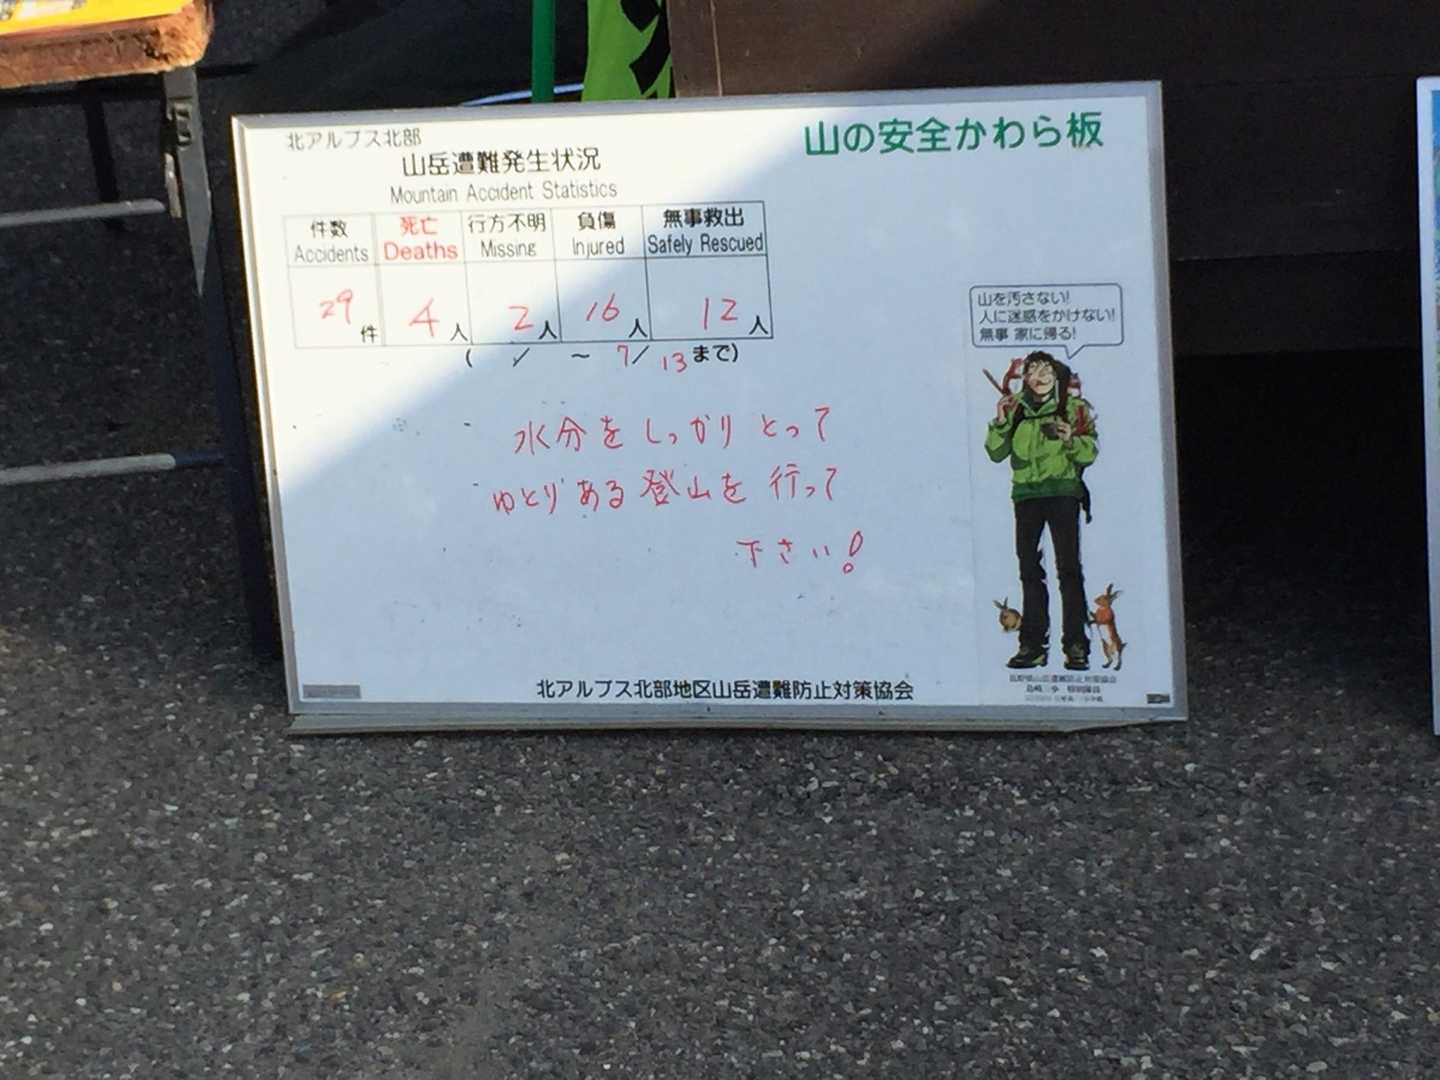 北アルプス北部
山岳遭難発生状況
Mountain Accident Statistics
山の安全かわら板
件数 死亡 行方不明 負傷 無事救出
Accidents Deaths Missing Injured Safely Rescued
29件 4人 2人 16人 12人
( / ～ 7/13まで)
水分をしっかりとって
ゆとりある登山を行って
下さい!
山を汚さない!
人に迷惑をかけない!
無事 家に帰る!
長野県山岳遭難防止対策協会
島崎三歩 特別隊員
北アルプス北部地区山岳遭難防止対策協会